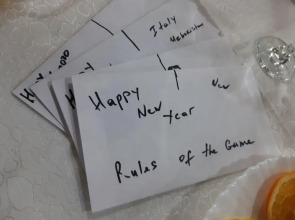 Italy
Uzbekistan
New
Happy
New
Year
Rules of the Game